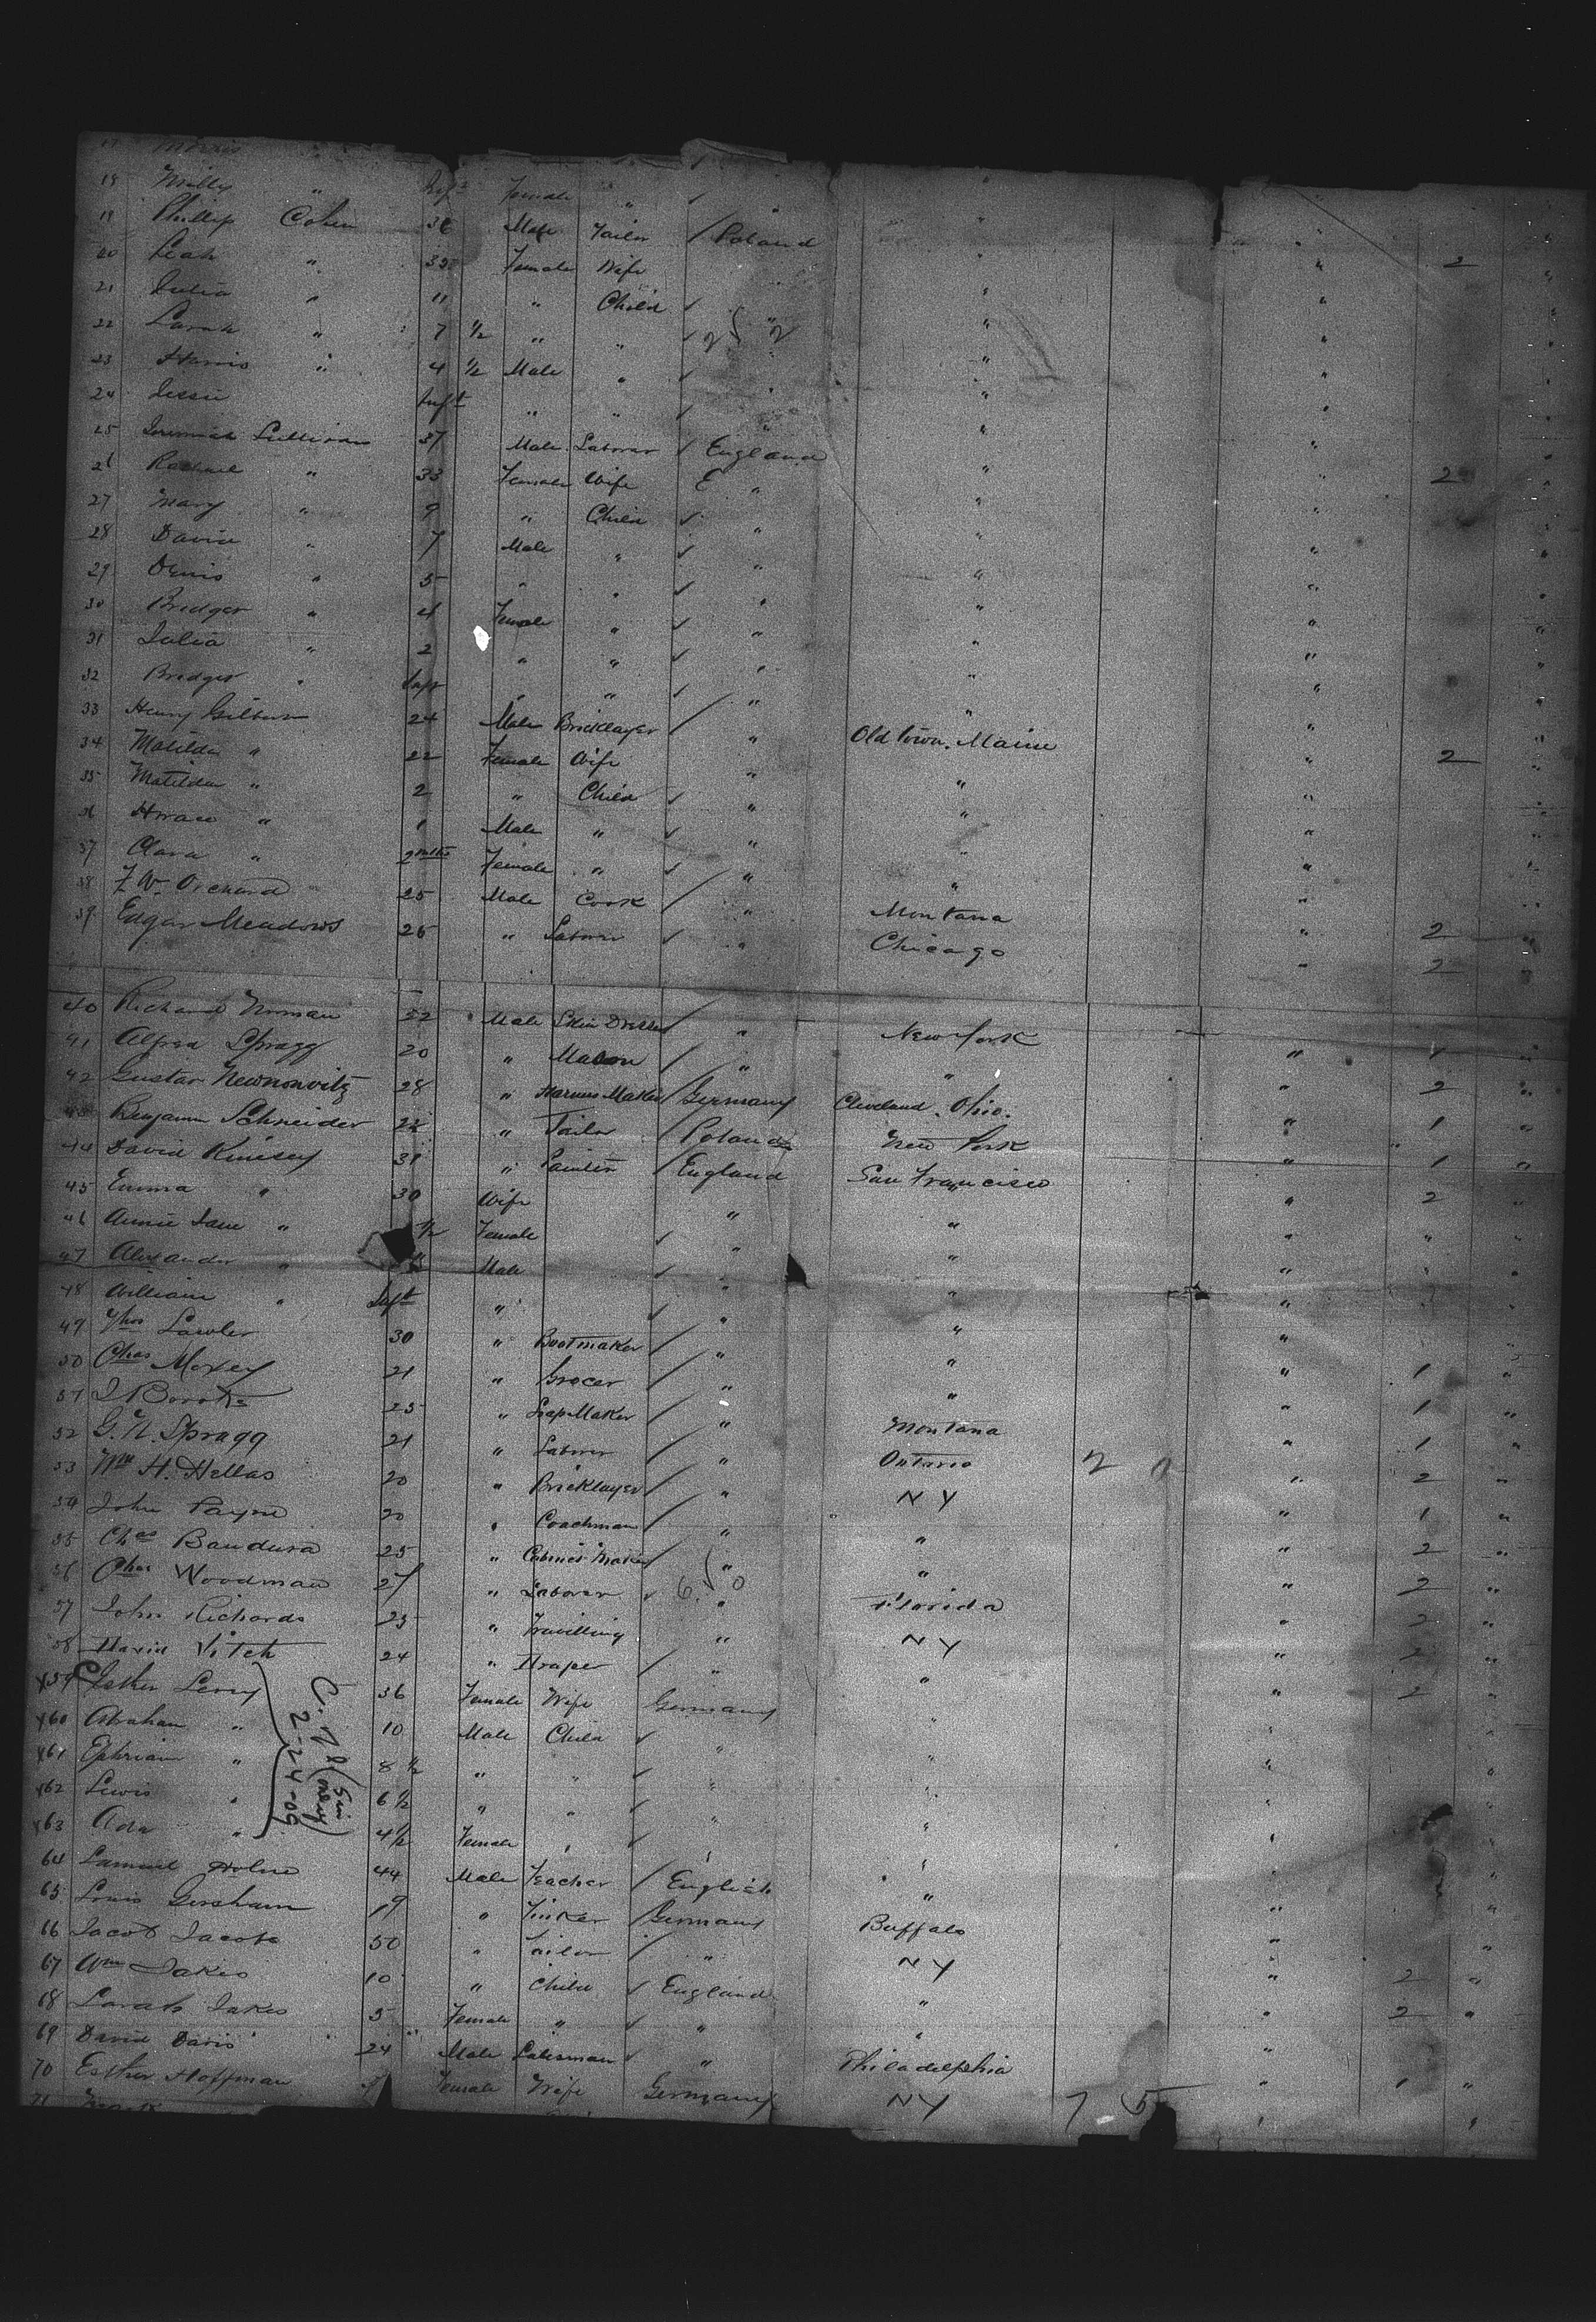 17 Morris
18 Milly " Inft Female " ✓ "
19 Phillip Cohen 36 Male Tailor / Poland " "
20 Leah " 35 Female Wife " " " 2 "
21 Julia " 11 " Child ✓ " " " "
22 Sarah " 7 1/2 " " ✓ " " "
23 Harris " 4 1/2 Male " ✓ " " " "
24 Jessie Inft " " ✓ " " " "
25 Jeremiah Sullivan 37 Male Laborer ✓ England " " "
26 Rachael " 33 Female Wife " " " 2 "
27 Mary " 9 " Child ✓ " " " "
28 David " 7 Male " ✓ " " " "
29 Denis " 5 " " ✓ " " " "
30 Bridget " 4 Female " ✓ " " " "
31 Julia " 2 " " ✓ " " " "
32 Bridget " Inft " " ✓ " " " "
33 Henry Gilburn 24 Male Bricklayer / " Old Town. Maine " "
34 Matilda " 22 Female Wife " " " 2 "
35 Matilda " 2 " Child ✓ " " " "
36 Horace " 1 Male " ✓ " " " "
37 Clara " 2 mths Female " ✓ " " " "
38 F. W. Orchard 25 Male Cook / " Montana " 2 "
39 Edgar Meadows 26 " Laborer ✓ " Chicago " 2 "
40 Richard Norman 32 Male Skin Dresser / " New York " 1 "
41 Alfred Spragg 20 " Mason / " " " 2 "
42 Gustav Newnonvitz 28 " Harness Maker / Germany Cleveland. Ohio. " 1 "
43 Benjamin Schneider 22 " Tailor / Poland New York " 1 "
44 David Kinsey 31 " Painter / England San Francisco " 2 "
45 Emma " 30 Wife " " " " "
46 Annie Jane " 1/2 Female ✓ " " " "
47 Alexander " Male ✓ " " "
48 William " Inft " ✓ " " "
49 Thos Lawler 30 " Bootmaker / " " " 1 "
50 Chas Moxey 21 " Grocer / " " " 1 "
51 25 " Soap Maker / " Montana " 1 "
52 G. N. Spragg 21 " Laborer / " Ontario " 2 "
53 Wm H. Hellas 20 " Bricklayer / " NY " 1 "
54 John Payne 20 " Coachman / " " " 2 "
55 Chas Bandura 25 " Cabinet Maker / " " " 2 "
56 Chas Woodman 27 " Laborer ✓ " Florida " 2 "
57 John Richards 25 " Travelling " NY " 2 "
58 David Vitch 24 " Draper / " " " 2 "
x59 Esther Levy 36 Female Wife Germany " "
x60 Abraham " 10 Male Child ✓ " " "
x61 Ephriam " 8 1/2 " " ✓ " " "
x62 Lewis " 6 1/2 " " ✓ " " "
x63 Ada " 4 1/2 Female " ✓ " " "
2-24-09
64 Samuel 44 Male Teacher / English " "
65 Louis Gersham 19 " Tinker / Germany Buffalo " "
66 Jacob Jacobs 50 " Tailor / " NY " 2 "
67 Wm Jakes 10 " Child ✓ England " " 2 "
68 Sarah Jakes 5 Female " ✓ " " "
69 David Davis 24 Male Salesman ✓ " Philadelphia " 1 "
70 Esther Hoffman Female Wife Germany NY 7 5
71